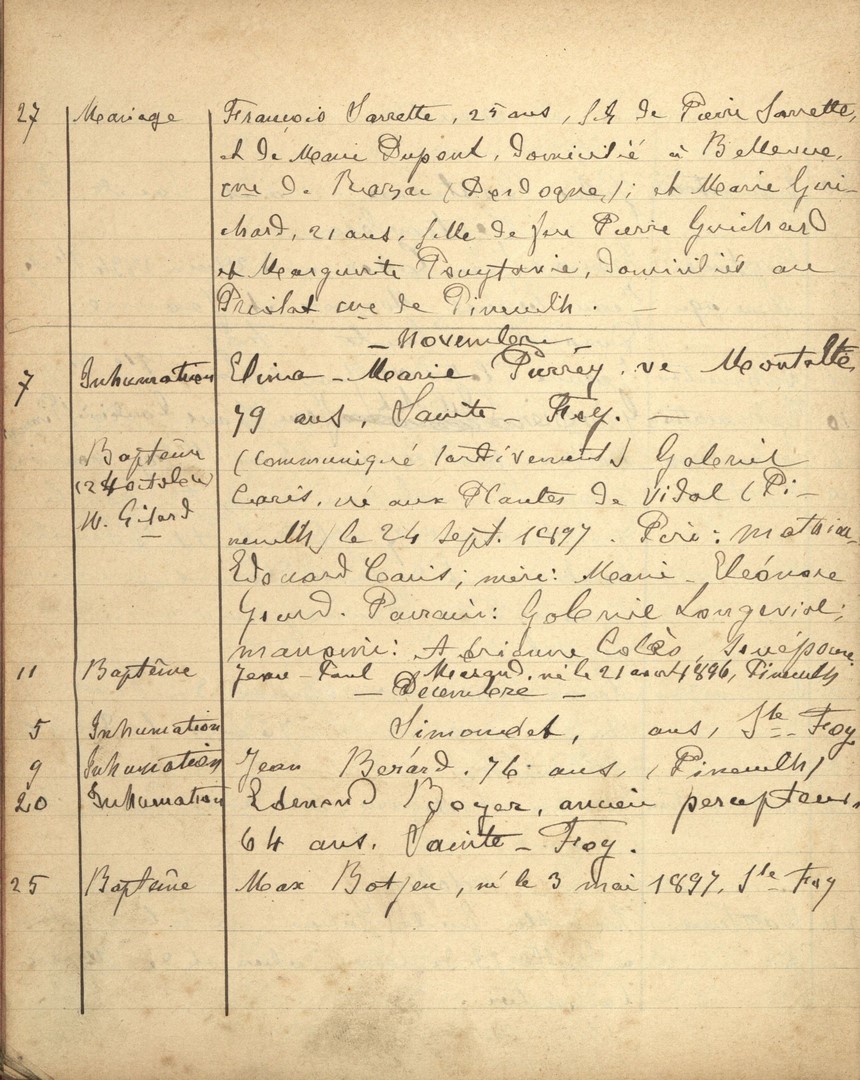 27 Mariage François Sarrette, 25 ans, fils de Pierre Sarrette,
et de Marie Dupont, domicilié à Bellevue,
cne de Razac (Dordogne); et Marie Gui-
chard, 21 ans, fille de feu Pierre Guichard
et Marguerite, domiciliés au
cne de Pineuilh. —
— Novembre —
7 Inhumation Elima - Marie Purrey. ve Montalte
79 ans, Sainte-Foy. —
Baptême (communiqué tardivement) Gabriel
(24 octobre) Caris, né aux Plantes de Vidal (Pi-
M. Girard neuilh) le 24 Sept. 1897. Père: Mathieu
Edouard Caris; mère: Marie-Eléonore
Girard. Parrain: Gabriel;
marraine: Adrienne
11 Baptême Jean-Paul, né le 21 août 1896, Pineuilh
— Décembre —
5 Inhumation Simondet, ans, Ste Foy
9 Inhumation Jean Berard. 76 ans, (Pineuilh)
20 Inhumation Edmond Boyer, ancien percepteur,
64 ans. Sainte-Foy.
25 Baptême Max, né le 3 mai 1897, Ste Foy